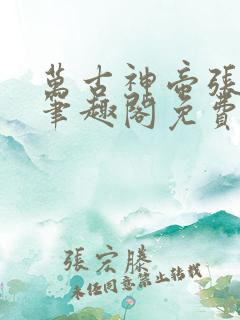 萬古神帝張
筆趣閣免費
張宏滕
未經同意禁止轉載